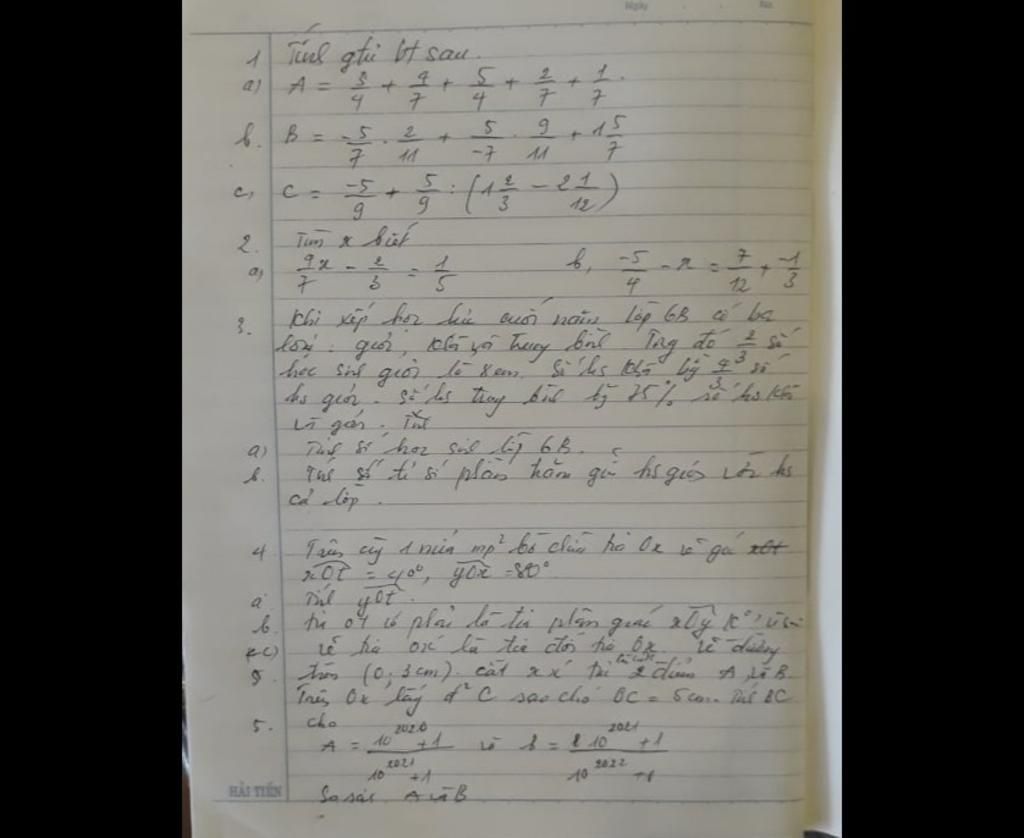 Ngày No.
1 Tính gtri bt sau.
a) A = 3/4 + 9/7 + 5/4 + 2/7 + 1/7.
b. B = -5/7 . 2/11 + 5/-7 . 9/11 + 1 5/7
c, C = -5/9 + 5/9 : (1 2/3 - 2 1/12)
2. Tìm x biết
a, 9x/7 - 2/3 = 1/5 b, -5/4 - x = 7/12 + -1/3
3. Khi xếp học lực cuối năm lớp 6B có ba
loại: giỏi, khá và trung bình. Trg đó 2/3 số
học sinh giỏi là 8 em. Số hs khá bg 4/3 số
hs giỏi. Số hs trug bình bg 25% số hs khá
và giỏi. Tính
a) Tính số học sinh lớp 6B.
b. Tính số tỉ số phần trăm giữa hs giỏi với hs
cả lớp.
4 Trên cg 1 nửa mp² bờ chứa tia Ox vẽ góc xOt
xOt = 40°, yOx = 80°
a Tính yOt.
b. tia Ot có phải là tia phân giác xOy k°?
c) vẽ tia Ox' là tia đối tia Ox. vẽ đường
tròn (O; 3cm). cắt xx' tại 2 điểm A và B.
Trên Ox lấy đ² C sao cho OC = 5cm. Tính BC
5. cho
A = 10^2020 + 1 / 10^2021 + 1 và B = 10^2021 + 1 / 10^2022 + 1
So sánh A và B
HẢI TIẾN